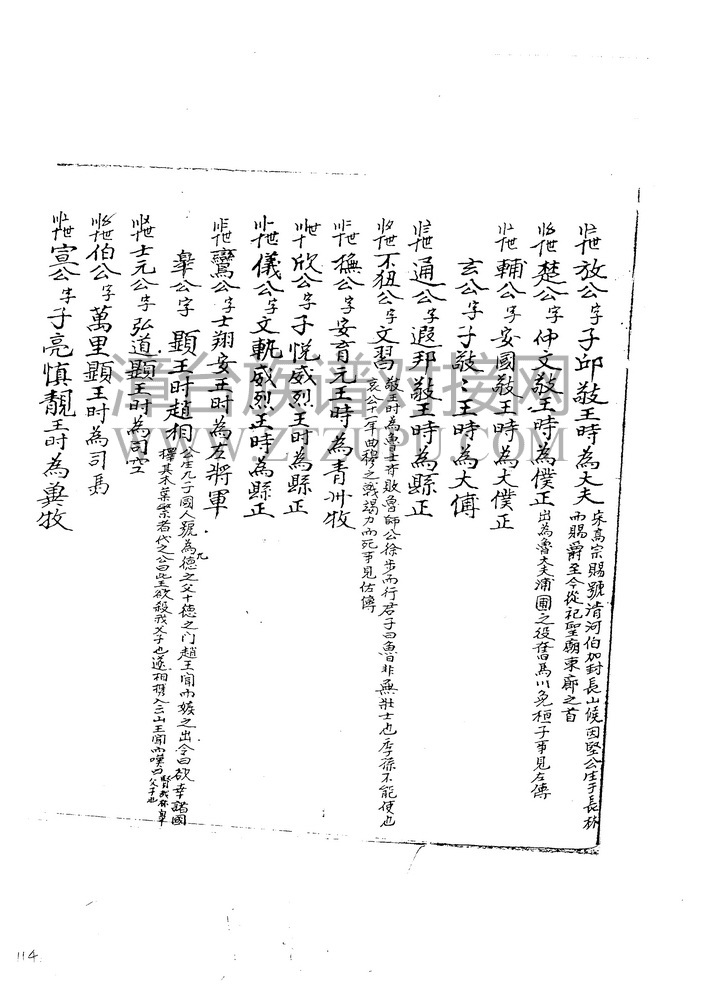 世放公字子邱敬王時為大夫宋高宗賜號清河伯加封長山候因堅公生于長林
而賜爵至今從祀聖廟東廊之首
世楚公字仲文敬王時為僕正出為魯大夫蒲圃之役奮馬以免桓子事見左傳
世輔公字安國敬王時為大僕正
玄公字子敬〻王時為大傅
世通公字遐邦敬王時為縣正
世不狃公字文習敬王時為魯士亦敗魯師公徐步而行君子曰魯非無壯士也季孫不能使也
哀公十一年曲穆之戰竭力而死事見佐傳
世橅公字安育元王時為青州牧
世欣公字子悅威烈王時為縣正
世儀公字文軌威烈王時為縣正
世鸞公字士翔安王時為左將軍
皋公字 顯王時趙相公生九子國人號為九德之父十德之门趙王聞而嫉之出令曰欲幸諸國
擇其木葉繁者代之公曰此王欲殺我父子也遂相携入云山王聞而嘆曰賢哉張皋
父子也
世士元公字弘道顯王時為司空
世伯公字萬里顯王時為司馬
世宣公字子亮慎靚王時為冀牧
清台族谱对接网
WWW.QTZUPU.COM
114